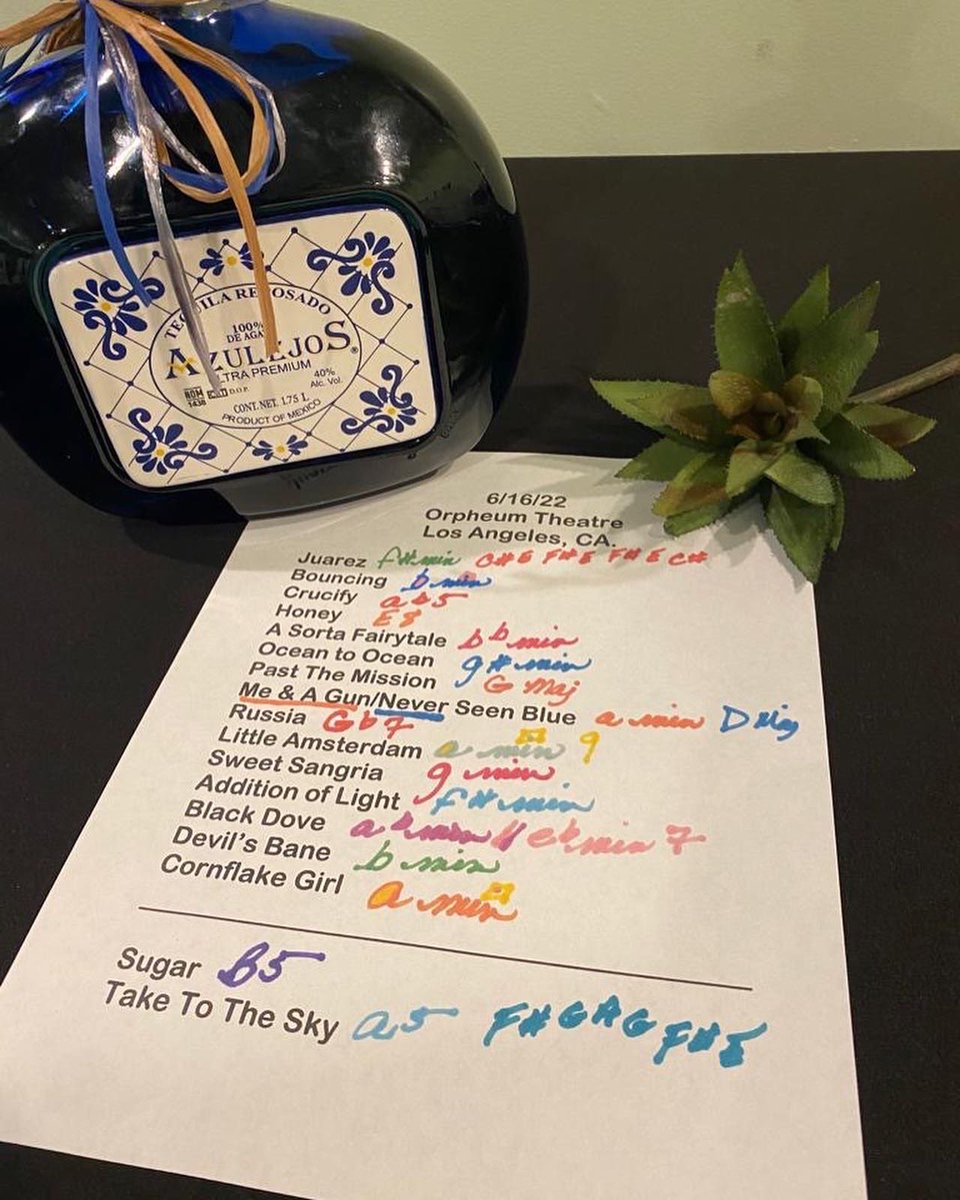 TEQUILA REPOSADO
100%
DE AGAVE
AZULEJOS®
ULTRA PREMIUM
NOM
1438
D.O.P.
40%
Alc. Vol.
CONT. NET. 1.75 L
PRODUCT OF MEXICO
6/16/22
Orpheum Theatre
Los Angeles, CA.
Juarez f# min C#E F#E F#E C#
Bouncing b min
Crucify ab5
Honey E8
A Sorta Fairytale bb min
Ocean to Ocean g# min
Past The Mission G Maj
Me & A Gun/Never Seen Blue a min D Maj
Russia Gb7
Little Amsterdam a min 9
Sweet Sangria g min
Addition of Light f# min
Black Dove ab min // eb min 7
Devil's Bane b min
Cornflake Girl a min
Sugar B5
Take To The Sky a5 F# G A G F# E